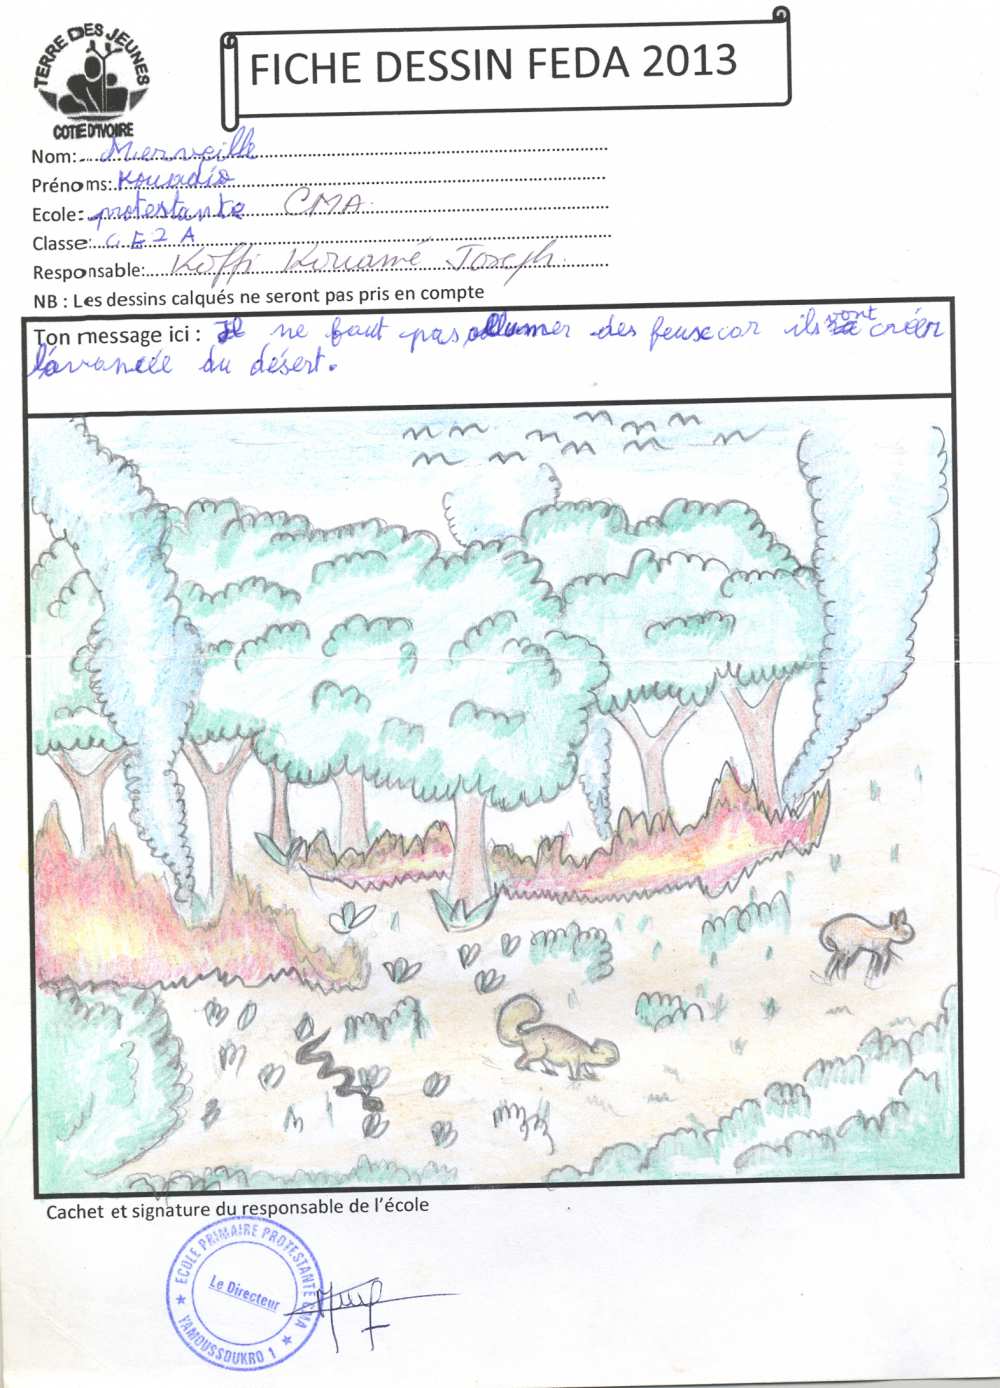 TERRE DES JEUNES
COTE D'IVOIRE
FICHE DESSIN FEDA 2013
Nom: Merveille
Prénoms: Kouadio
Ecole: protestante CMA
Classe: CE2 A
Responsable: Koffi Kouamé Joseph
NB : Les dessins calqués ne seront pas pris en compte
Ton message ici : Il ne faut pas allumer des feuse car ils vont créer
l'avancée du désert.
Cachet et signature du responsable de l'école
ECOLE PRIMAIRE PROTESTANTE CMA
Le Directeur
YAMOUSSOUKRO 1